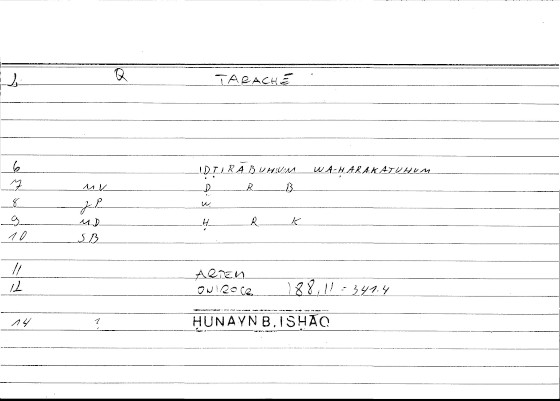 1 Q TARACHĒ
6 IḌṬIRĀBUHUM WA-ḤARAKATUHUM
7 MV Ḍ R B
8 JP W
9 MD Ḥ R K
10 SB
11 ARTEM
12 ONIROCR 188,11 = 341.4
14 1 ḤUNAYN B. ISḤĀQ